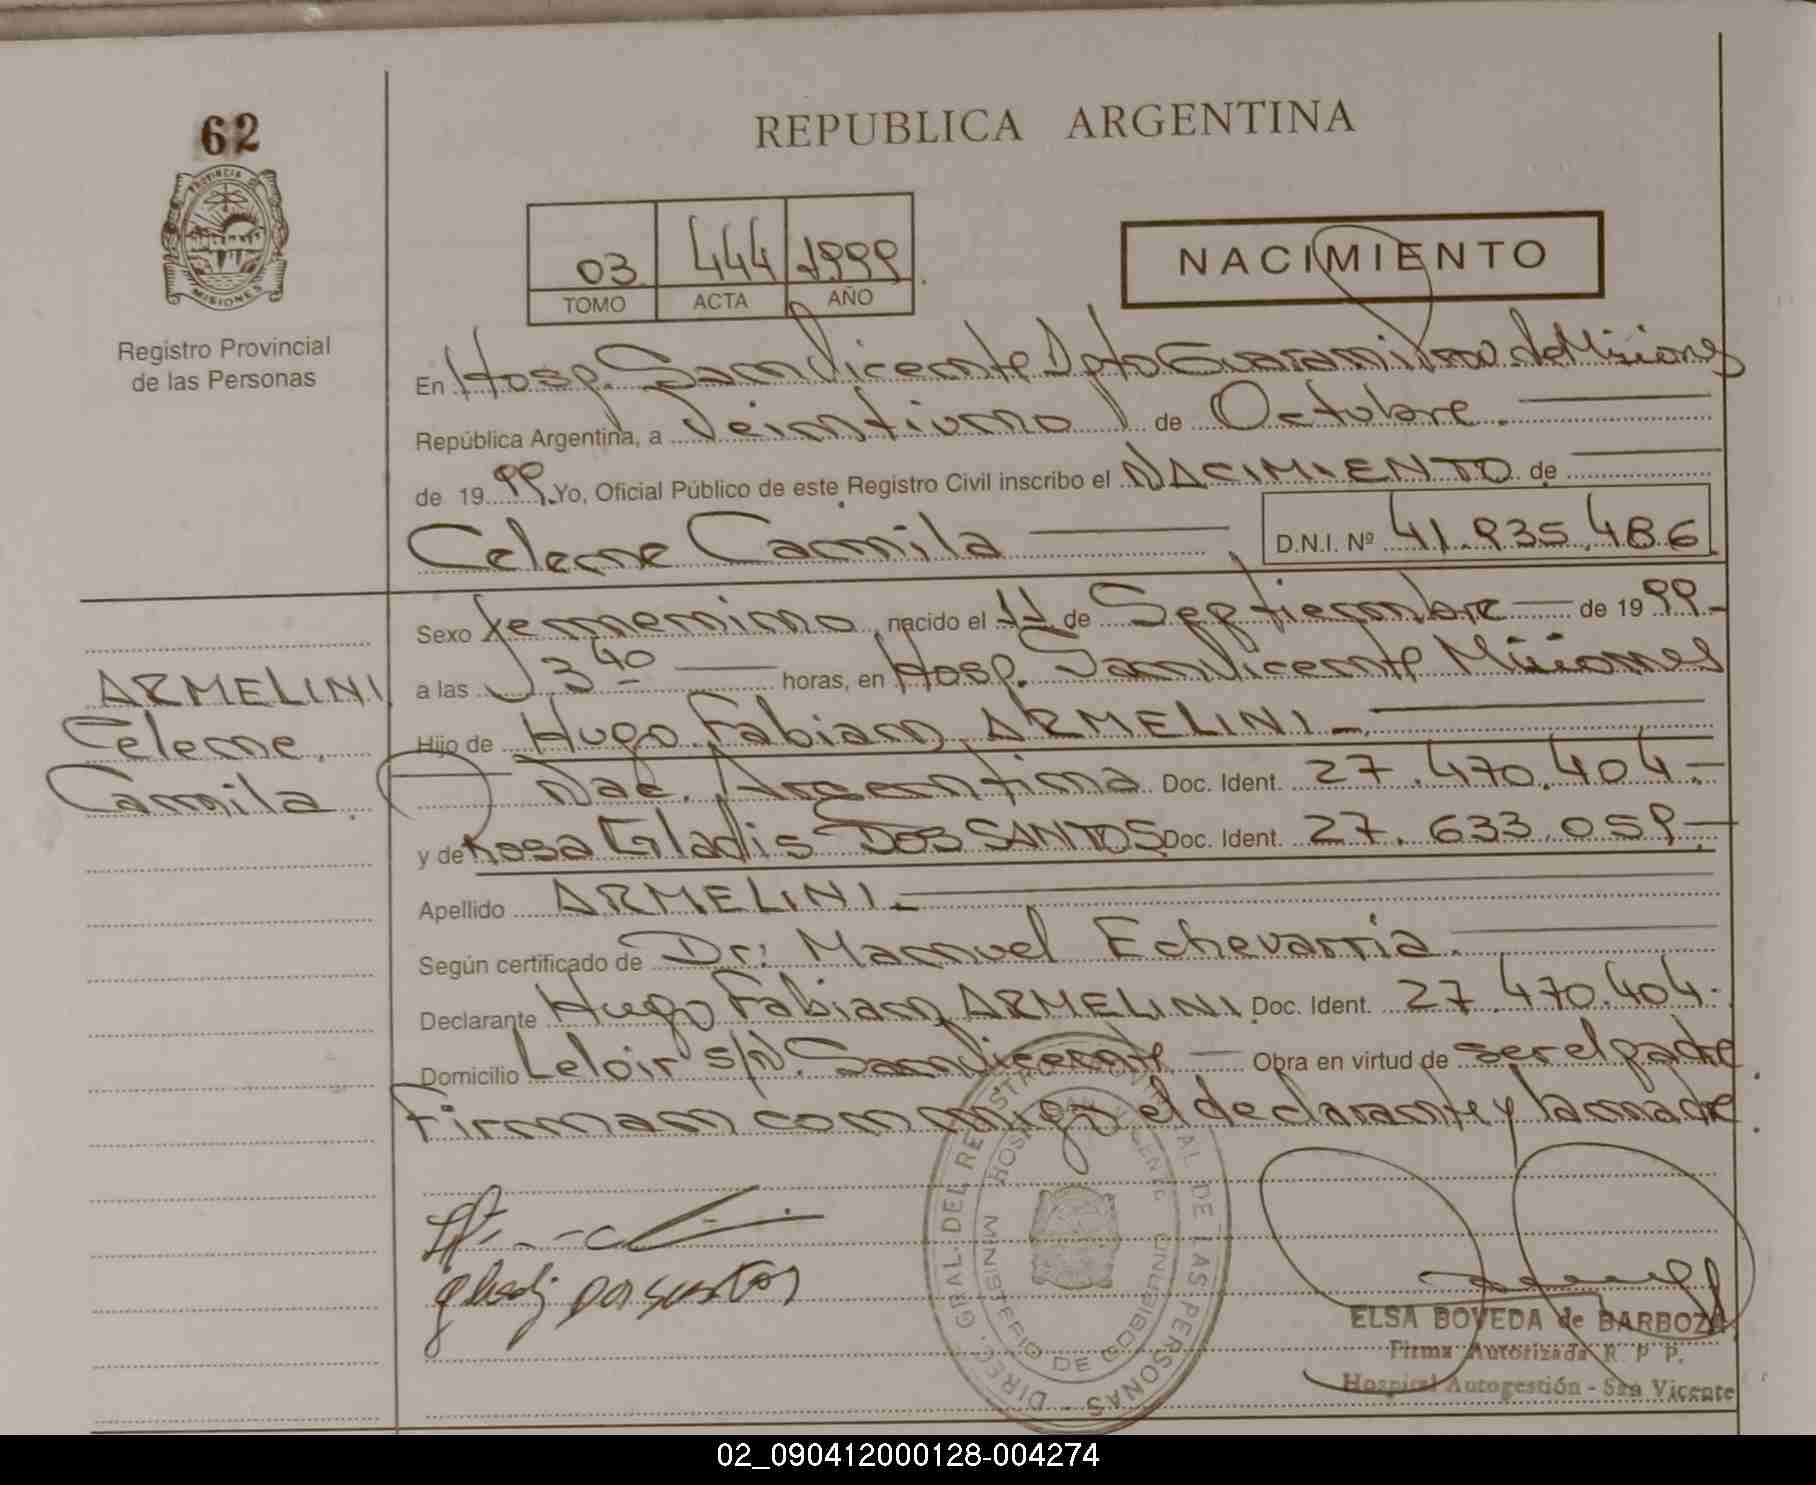 62
PROVINCIA DE
MISIONES
Registro Provincial
de las Personas
REPUBLICA ARGENTINA
03 444 1999
TOMO ACTA AÑO
NACIMIENTO
En Hosp. San Vicente Dpto Guarani Prov. de Misiones
República Argentina, a Veintiuno de Octubre.
de 1999. Yo, Oficial Público de este Registro Civil inscribo el NACIMIENTO de
Celene Camila D.N.I. Nº 41.935.486
Sexo femenino nacido el 11 de Septiembre de 1999.
a las 3 40 horas, en Hosp. San Vicente Misiones
Hijo de Hugo Fabian ARMELINI
Nac. Argentina Doc. Ident. 27.470.404.
y de Rosa Gladis DOS SANTOS Doc. Ident. 27.633.059
Apellido ARMELINI
Según certificado de Dr: Manuel Echevarria
Declarante Hugo Fabian ARMELINI Doc. Ident. 27.470.404.
Domicilio Leloir s/n. San Vicente Obra en virtud de ser el padre
Firman conmigo el declarante y la madre.
ARMELINI
Celene
Camila
DIREC. GRAL. DEL REGISTRO PROVINCIAL DE LAS PERSONAS
MINISTERIO DE GOBIERNO
HOSPITAL SAN VICENTE
ELSA BOVEDA de BARBOZA
Firma Autorizada R. P. P.
Hospital Autogestión - San Vicente
02_090412000128-004274